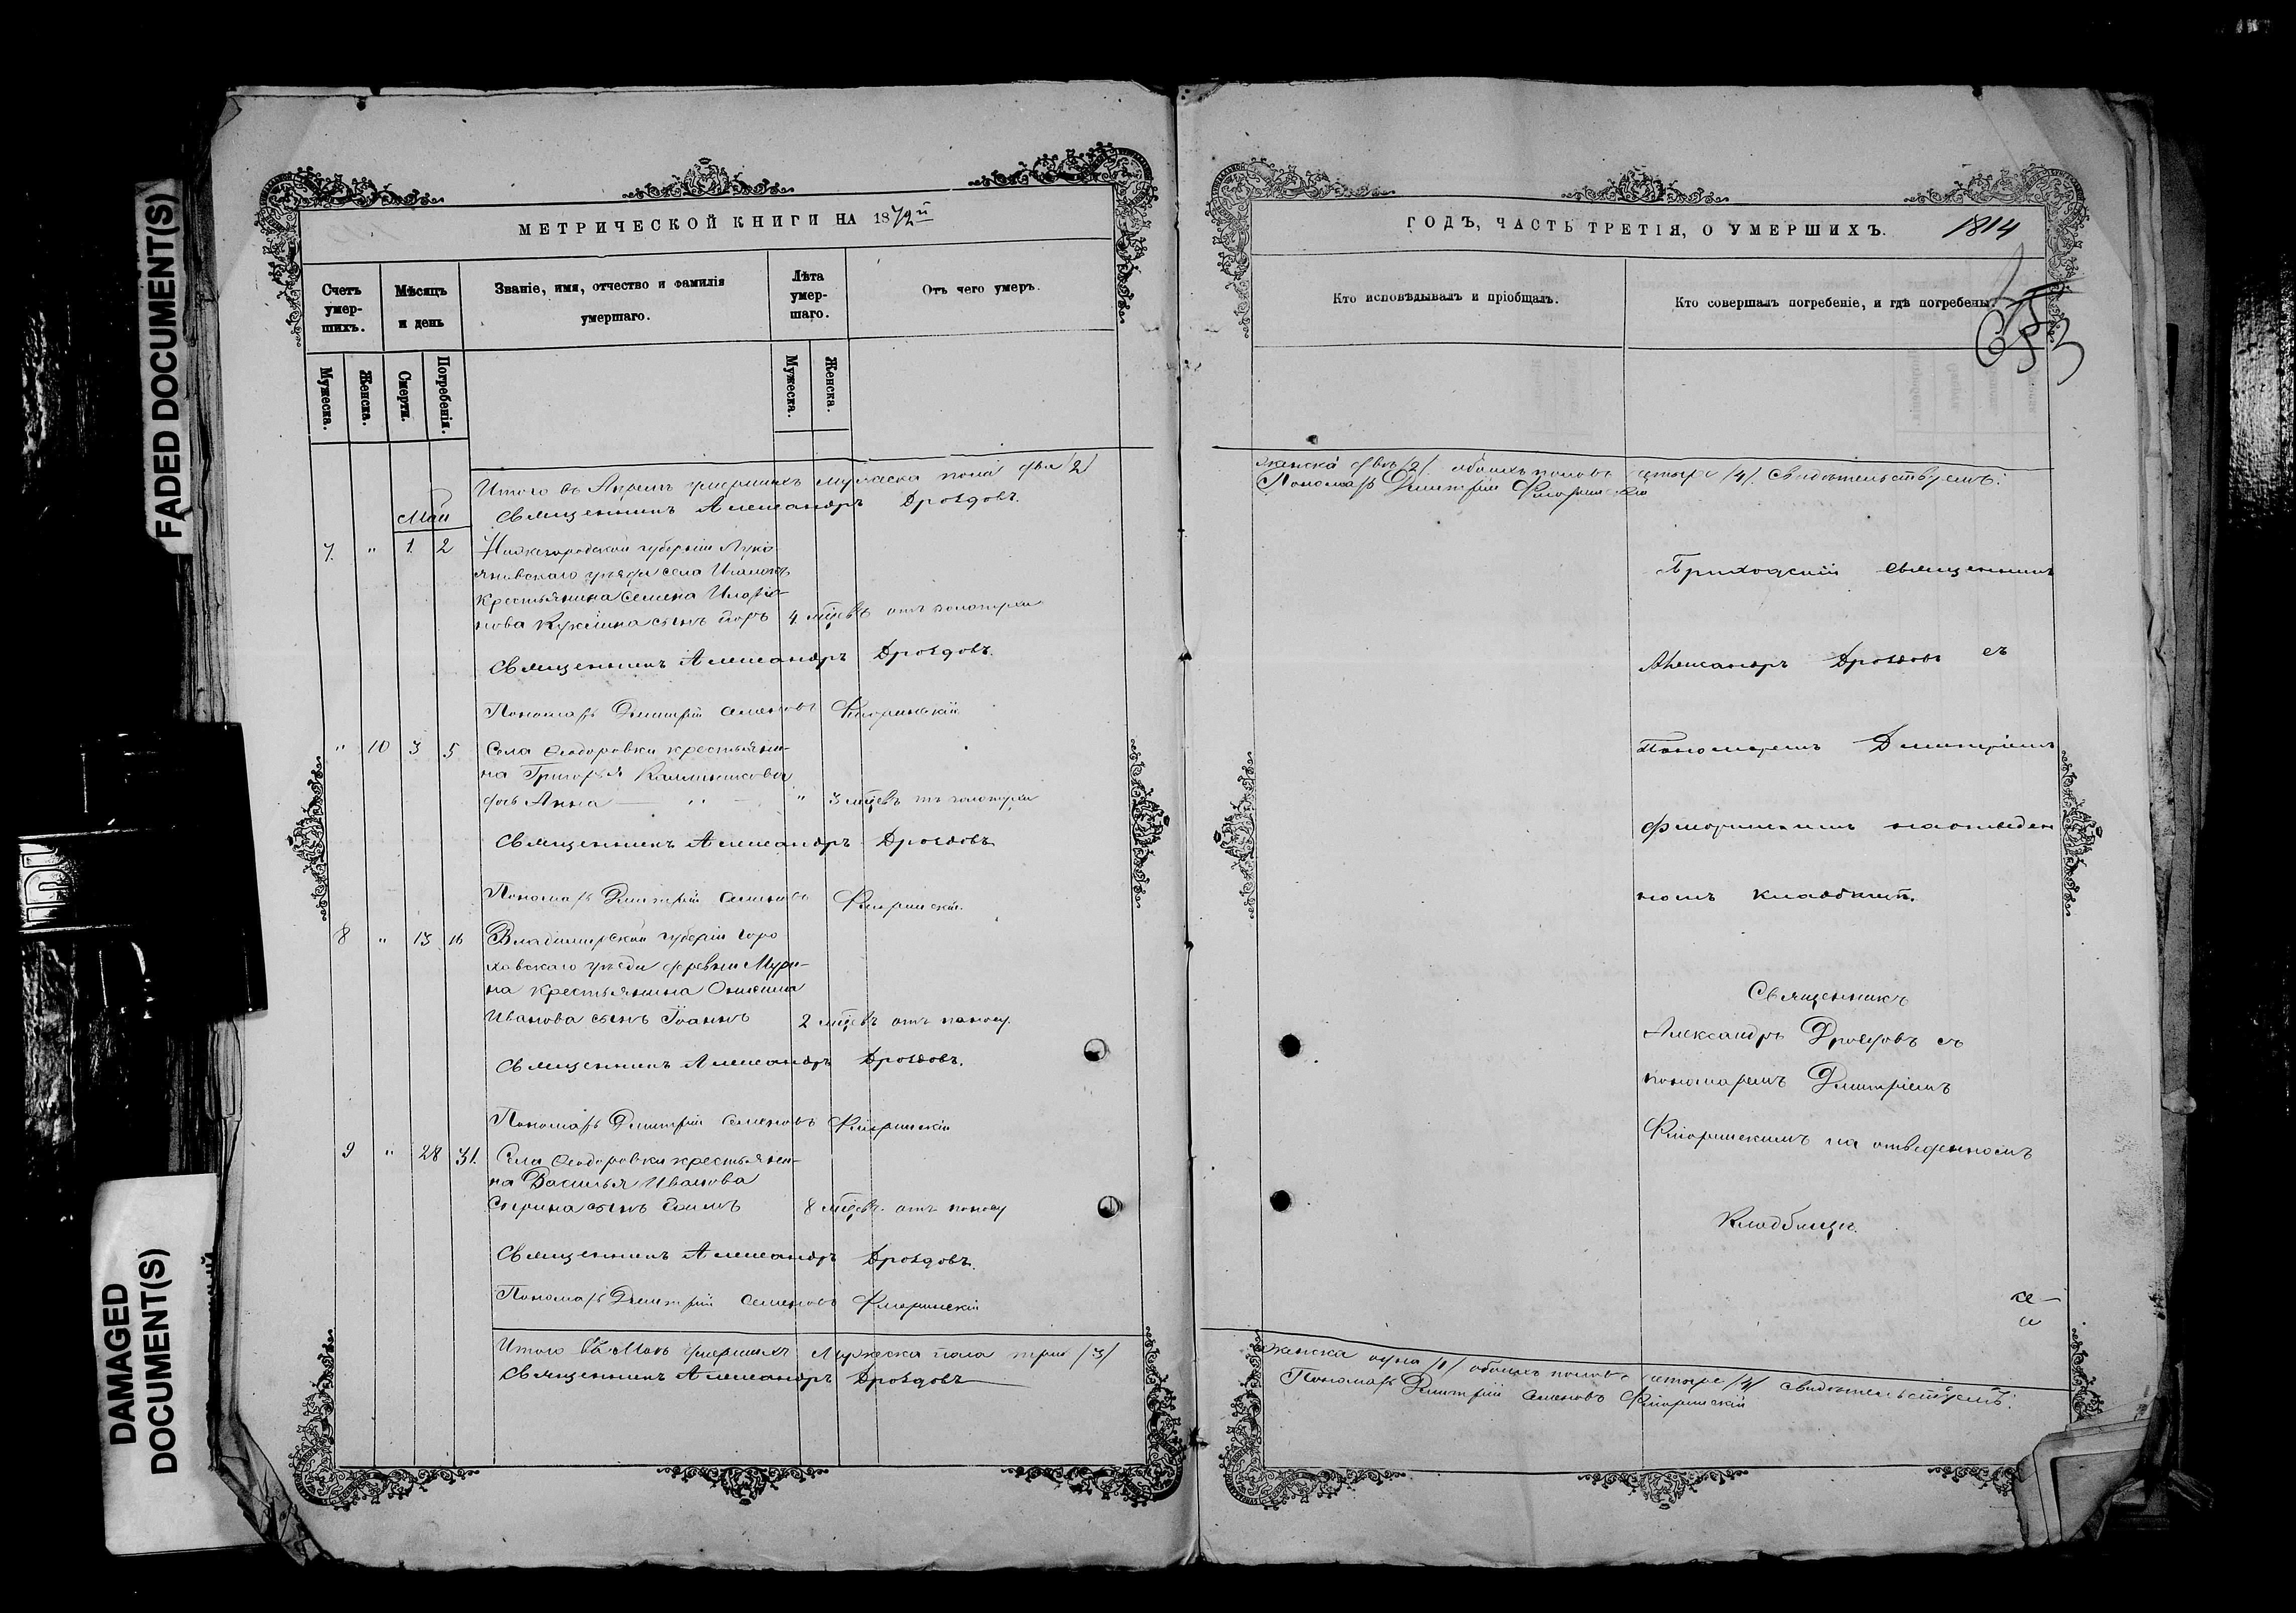 FADED DOCUMENT(S)
DAMAGED
DOCUMENT(S)
МЕТРИЧЕСКОЙ КНИГИ НА 1872й
Счетъ умер-
шихъ.
Мѣсяцъ
и день
Званіе, имя, отчество и фамилія
умершаго.
Лѣта
умер-
шаго.
Отъ чего умеръ.
Мужеска.
Женска.
Смерти.
Погребенія.
Мужеска.
Женска.
Итого въ Апрелѣ умершихъ мужеска пола два /2/
Май Священникъ Александръ Дроздовъ.
7. " 1. 2 Нижегородской губерніи Луко-
яновскаго уѣзда села
крестьянина Семена
нова сынъ 4 мѣсцевъ отъ золотухи
Священникъ Александръ Дроздовъ.
Пономарь Димитрій Семеновъ Флоринскій
" 10 3 5 Села Ѳеодоровки крестьяни-
на Григорья Калинникова
дочь Анна " 3 мѣсцевъ отъ золотухи
Священникъ Александръ Дроздовъ
Пономарь Димитрій Семеновъ Флоринскій.
8 " 13 16 Владимірской губерніи Горо-
ховскаго уѣзда деревни
на крестьянина Онисима
Иванова сынъ Іоаннъ 2 мѣсцевъ отъ поносу.
Священникъ Александръ Дроздовъ.
Пономарь Димитрій Семеновъ Флоринскій
9 " 28 31. Села Ѳеодоровки крестьяни-
на Василья Иванова
сынъ 8 мѣсцевъ. отъ поносу
Священникъ Александръ Дроздовъ.
Пономарь Димитрій Семеновъ Флоринскій
Итого въ Маѣ умершихъ Мужеска пола три /3/
Священникъ Александръ Дроздовъ
ГОДЪ, ЧАСТЬ ТРЕТІЯ, О УМЕРШИХЪ. 1814
Кто исповѣдывалъ и пріобщалъ.
Кто совершалъ погребеніе, и гдѣ погребены.
женска двѣ /2/. обоихъ половъ четыре /4/. Свидѣтельствуемъ:
Пономарь Димитрій Флоринскій
Приходскій священникъ
Александръ Дроздовъ съ
Пономаремъ Димитріемъ
Флоринскимъ на отведен
номъ кладбищѣ.
Священникъ
Александръ Дроздовъ съ
пономаремъ Димитріемъ
Флоринскимъ на отведенномъ
Кладбищѣ.
женска одна /1/ обоихъ половъ четыре /4/ свидѣтельствуемъ:
Пономарь Димитрій Семеновъ Флоринскій